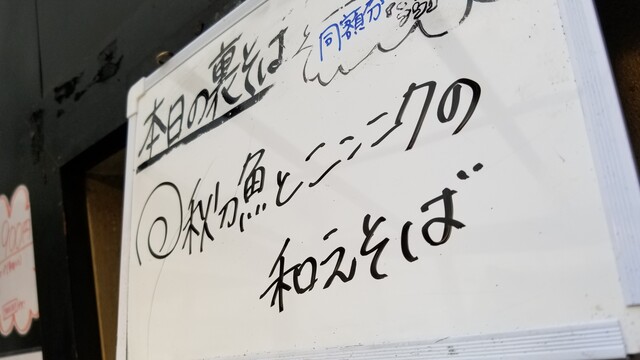 本日の裏そば
同額分
秋刀魚とニンニクの
和えそば